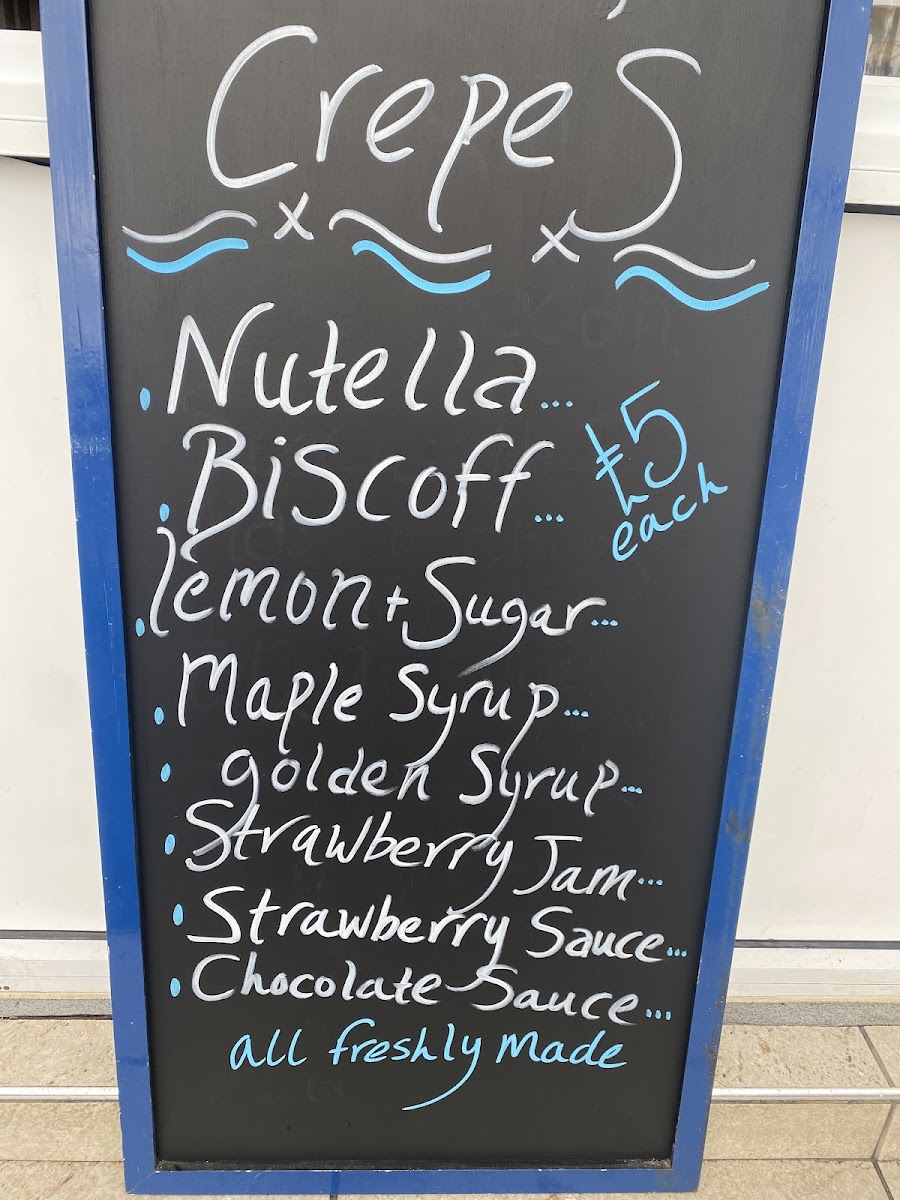 Crepes
x x
• Nutella...
• Biscoff...
£5
each
• lemon + Sugar...
• Maple Syrup...
• golden Syrup...
• Strawberry Jam...
• Strawberry Sauce...
• Chocolate Sauce...
all freshly made